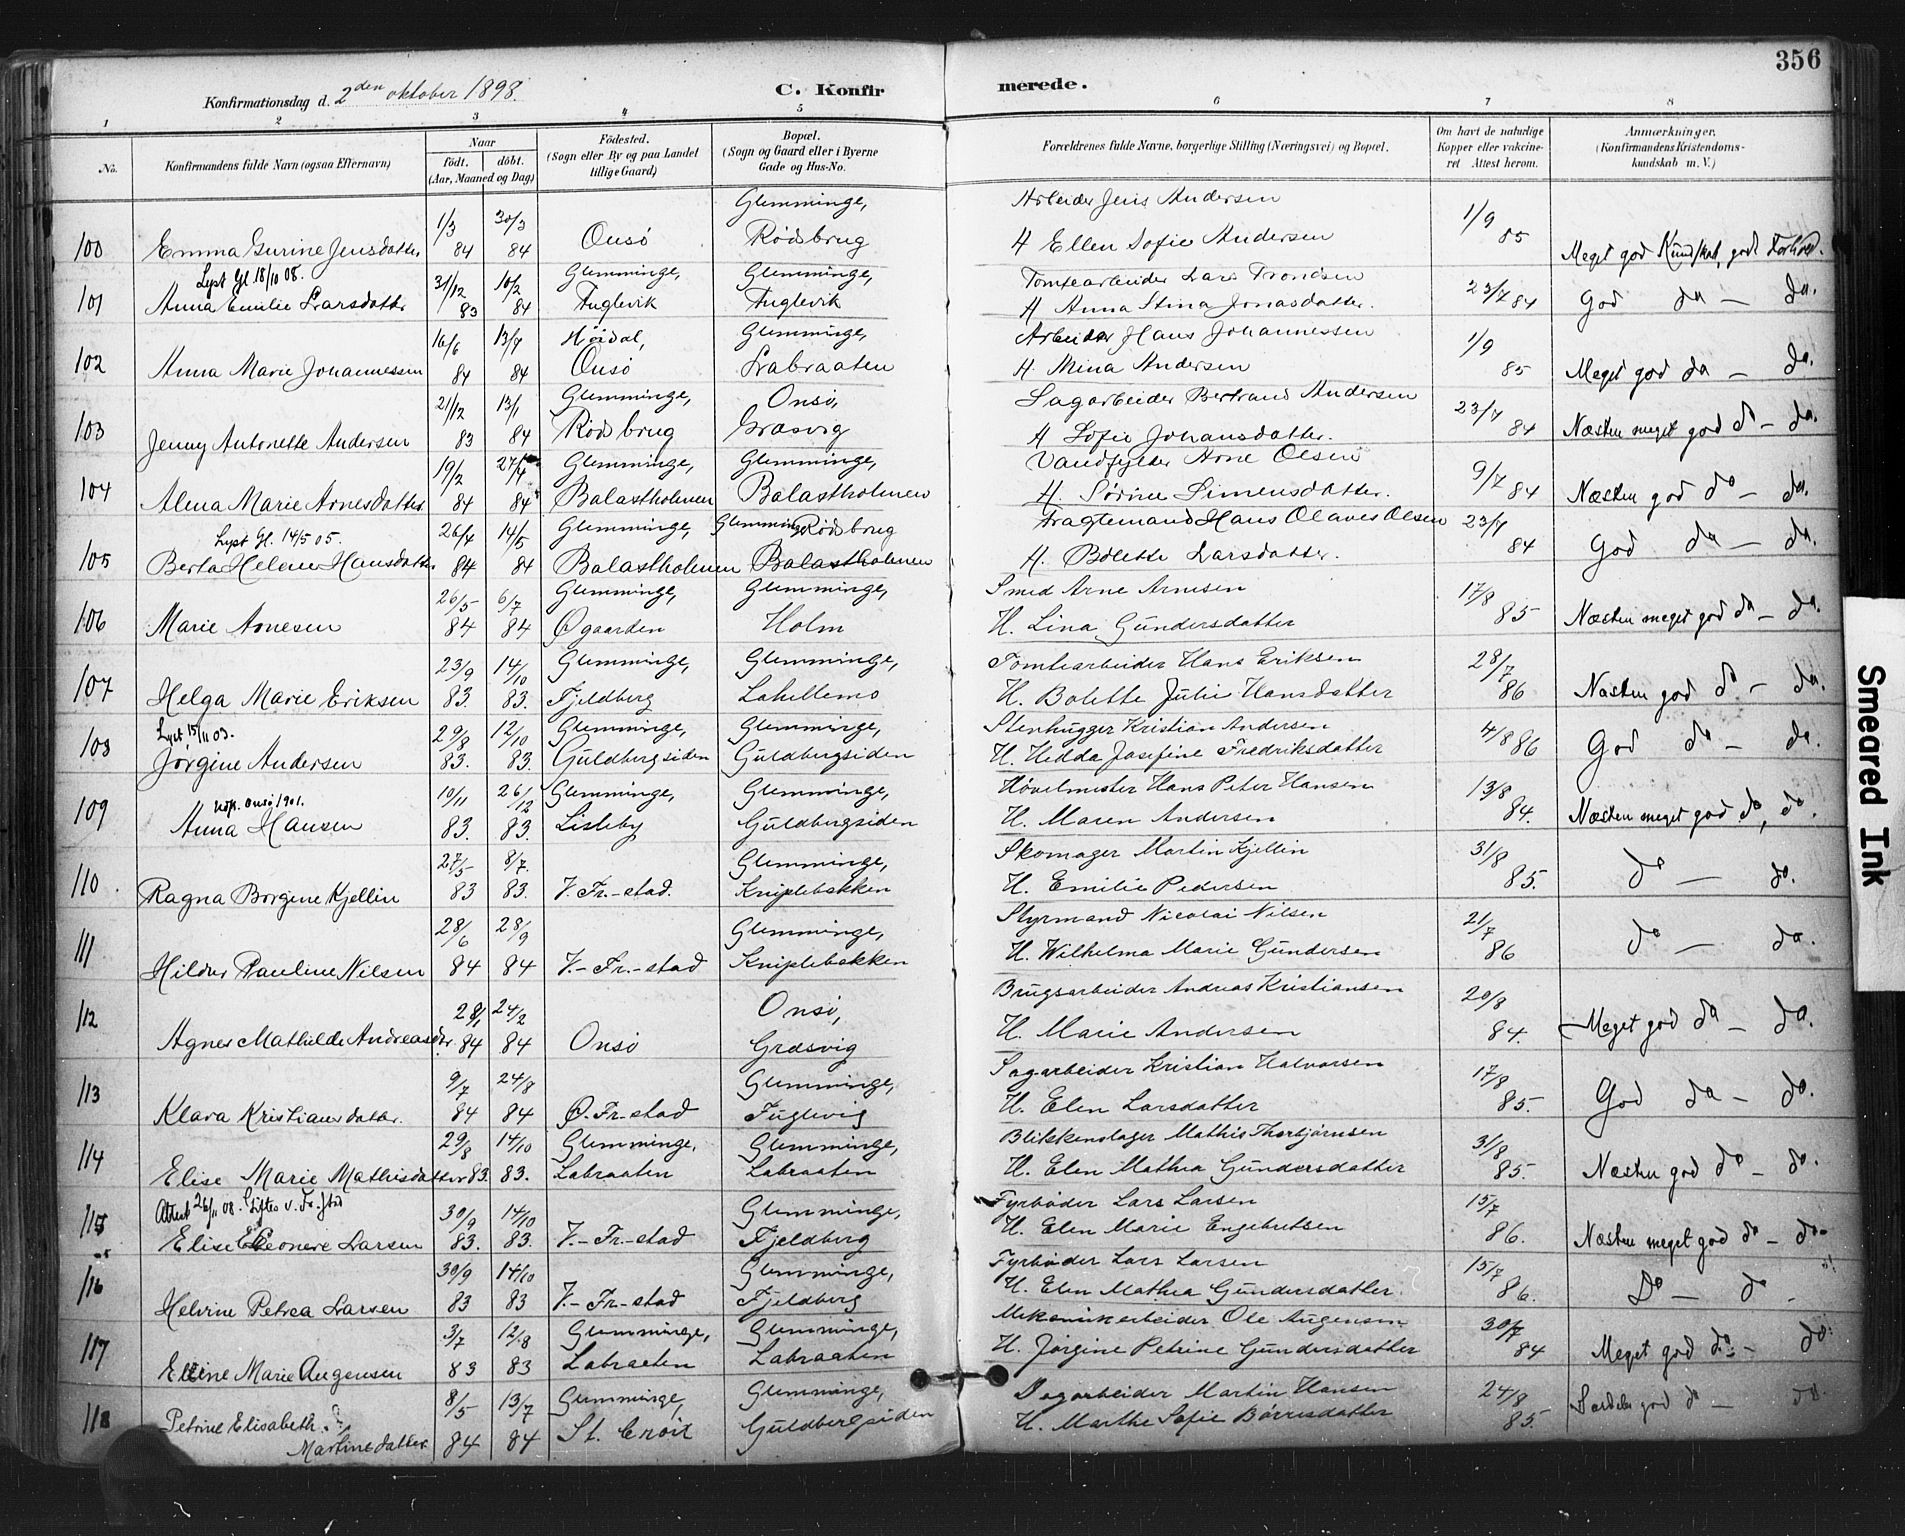 356
Konfirmationsdag d. 2den oktober 1898. C. Konfirmerede.
1 2 3 4 5 6 7 8
No. Konfirmandens fulde Navn (ogsaa Efternavn) Naar födt. döbt. (Aar, Maaned og Dag) Födested. (Sogn eller By og paa Landet tillige Gaard) Bopæl. (Sogn og Gaard eller i Byerne Gade og Hus-No. Forældrenes fulde Navne, borgerlige Stilling (Næringsvei) og Bopæl. Om havt de naturlige Kopper eller vaccineret Attest herom. Anmærkninger. (Konfirmandens Kristendomskundskab m. V.)
1/3 30/3 Glemminge, Arbeider Jens Andersen 1/9
100 Emma Gurine Jensdatter 84 84 Onsö Rödsbrug H Ellen Sofie Andersen 85 Meget god Kundskab, godt Forhold.
Lyst Gl 18/10 08. 31/12 10/2 Glemminge, Glemminge, Tomtearbeider Lars Trondsen 23/7
101 Anna Emilie Larsdatter 83 84 Fuglevik Fuglevik H Anna Stina Jonasdatter. 84 God do — do.
16/6 13/7 Höidal, Glemminge, Arbeider Hans Johannessen 1/9
102 Anna Marie Johannessen 84 84 Onsö Labraaten H. Mina Andersen 85 Meget god do — do.
21/12 13/1 Glemminge, Onsö, Sagarbeider Bertrand Andersen 23/7
103 Jenny Antonette Andersen 83 84 Rödsbrug Græsvig H Sofie Johansdatter. 84 Næsten meget god do — do.
19/2 27/4 Glemminge, Glemminge, Vandfylder Arne Olsen 9/7
104 Alma Marie Arnesdatter 84 84 Balastholmen Balastholmen H. Sörine Simensdatter. 84 Næsten god do — do.
Lyst Gl. 14/5 05. 26/4 14/5 Glemminge, Glemminge Rödsbrug Fragtemand Hans Olaves Olsen 23/7
105 Berta Helene Hansdatter 84 84 Balastholmen Balastholmen H. Bolette Larsdatter. 84 God do — do.
26/5 6/7 Glemminge, Glemminge, Smed Arne Arnesen 17/8
106 Marie Arnesen 84 84 Øgaarden Holm H. Lina Gundersdatter 85 Næsten meget god do — do.
23/9 14/10 Glemminge, Glemminge, Tomtearbeider Hans Eriksen 28/7
107 Helga Marie Eriksen 83. 83. Fjeldberg Lahellemo H. Bolette Julie Hansdatter 86 Næsten god do — do.
Lyst 15/11 03. 29/8 12/10 Glemminge, Glemminge, Stenhugger Kristian Andersen 4/8
108 Jørgine Andersen 83. 83. Guldbergsiden Guldbergsiden H. Hedda Josefine Fredriksdatter 86 God do — do.
Onsö 1901. 10/11 26/12 Glemminge, Glemminge, Høvelmester Hans Peter Hansen 13/8
109 Anna Hansen 83. 83. Lisleby Guldbergsiden H. Maren Andersen 84. Næsten meget god do, do.
27/5 8/7. Glemminge, Skomager Martin Kjellin 31/8
110 Ragna Borgine Kjellin 83 83. V. Fr.-stad. Kniplebakken H. Emilie Pedersen 85. do — do.
28/6 28/9 Glemminge, Styrmand Nicolai Nilsen 21/7
111 Hildur Pauline Nilsen 84 84 V.-Fr.-stad Kniplebakken H. Wilhelma Marie Gundersen 86 do — do.
28/1 24/2 Onsö, Brugsarbeider Andreas Kristiansen 20/8
112 Agnes Mathilde Andreasdtr. 84 84 Onsö Græsvig H. Marie Andersen 84. Meget god do — do.
9/7 24/8 Glemminge, Sagarbeider Kristian Halvorsen 17/8
113 Klara Kristiansdatter. 84 84 Ø.Fr-stad Fuglevig H. Elen Larsdatter 85. God do — do.
29/8 14/10 Glemminge, Glemminge, Blikkenslager Mathis Thorbjørnsen 31/8
114 Elise Marie Mathisdatter 83. 83. Labraaten Labraaten H. Elen Mathea Gundersdatter 85. Næsten god do — do.
Attest 26/11 08. Giftes v. Fr.stad 30/9 14/10 Glemminge, Fyrbøder Lars Larsen 15/7
115 Elise Eleonere Larsen 83. 83. V.-Fr-stad Fjeldberg H. Elen Marie Engebretsen 86. Næsten meget god do — do
30/9 14/10 Glemminge, Fyrbøder Lars Larsen 15/7
116 Helvine Petrea Larsen 83 83 V.-Fr-stad Fjeldberg H. Elen Mathea Gundersdatter. 86. Do — do
3/7 12/8 Glemminge, Glemminge, Mekanikarbeider Ole Augensen 30/7
117 Elline Marie Augensen 83 83 Labraaten Labraaten H. Jørgine Petrine Gundersdatter 84 Meget god do — do.
8/5 13/7 Glemminge, Glemminge, Dagarbeider Martin Hansen 24/8
118 Petrine Elisabeth Guldbergsiden H. Marthe Sofie Børresdatter 85. god do — do
Martinedatter 84 84 St. Croix
Smeared Ink